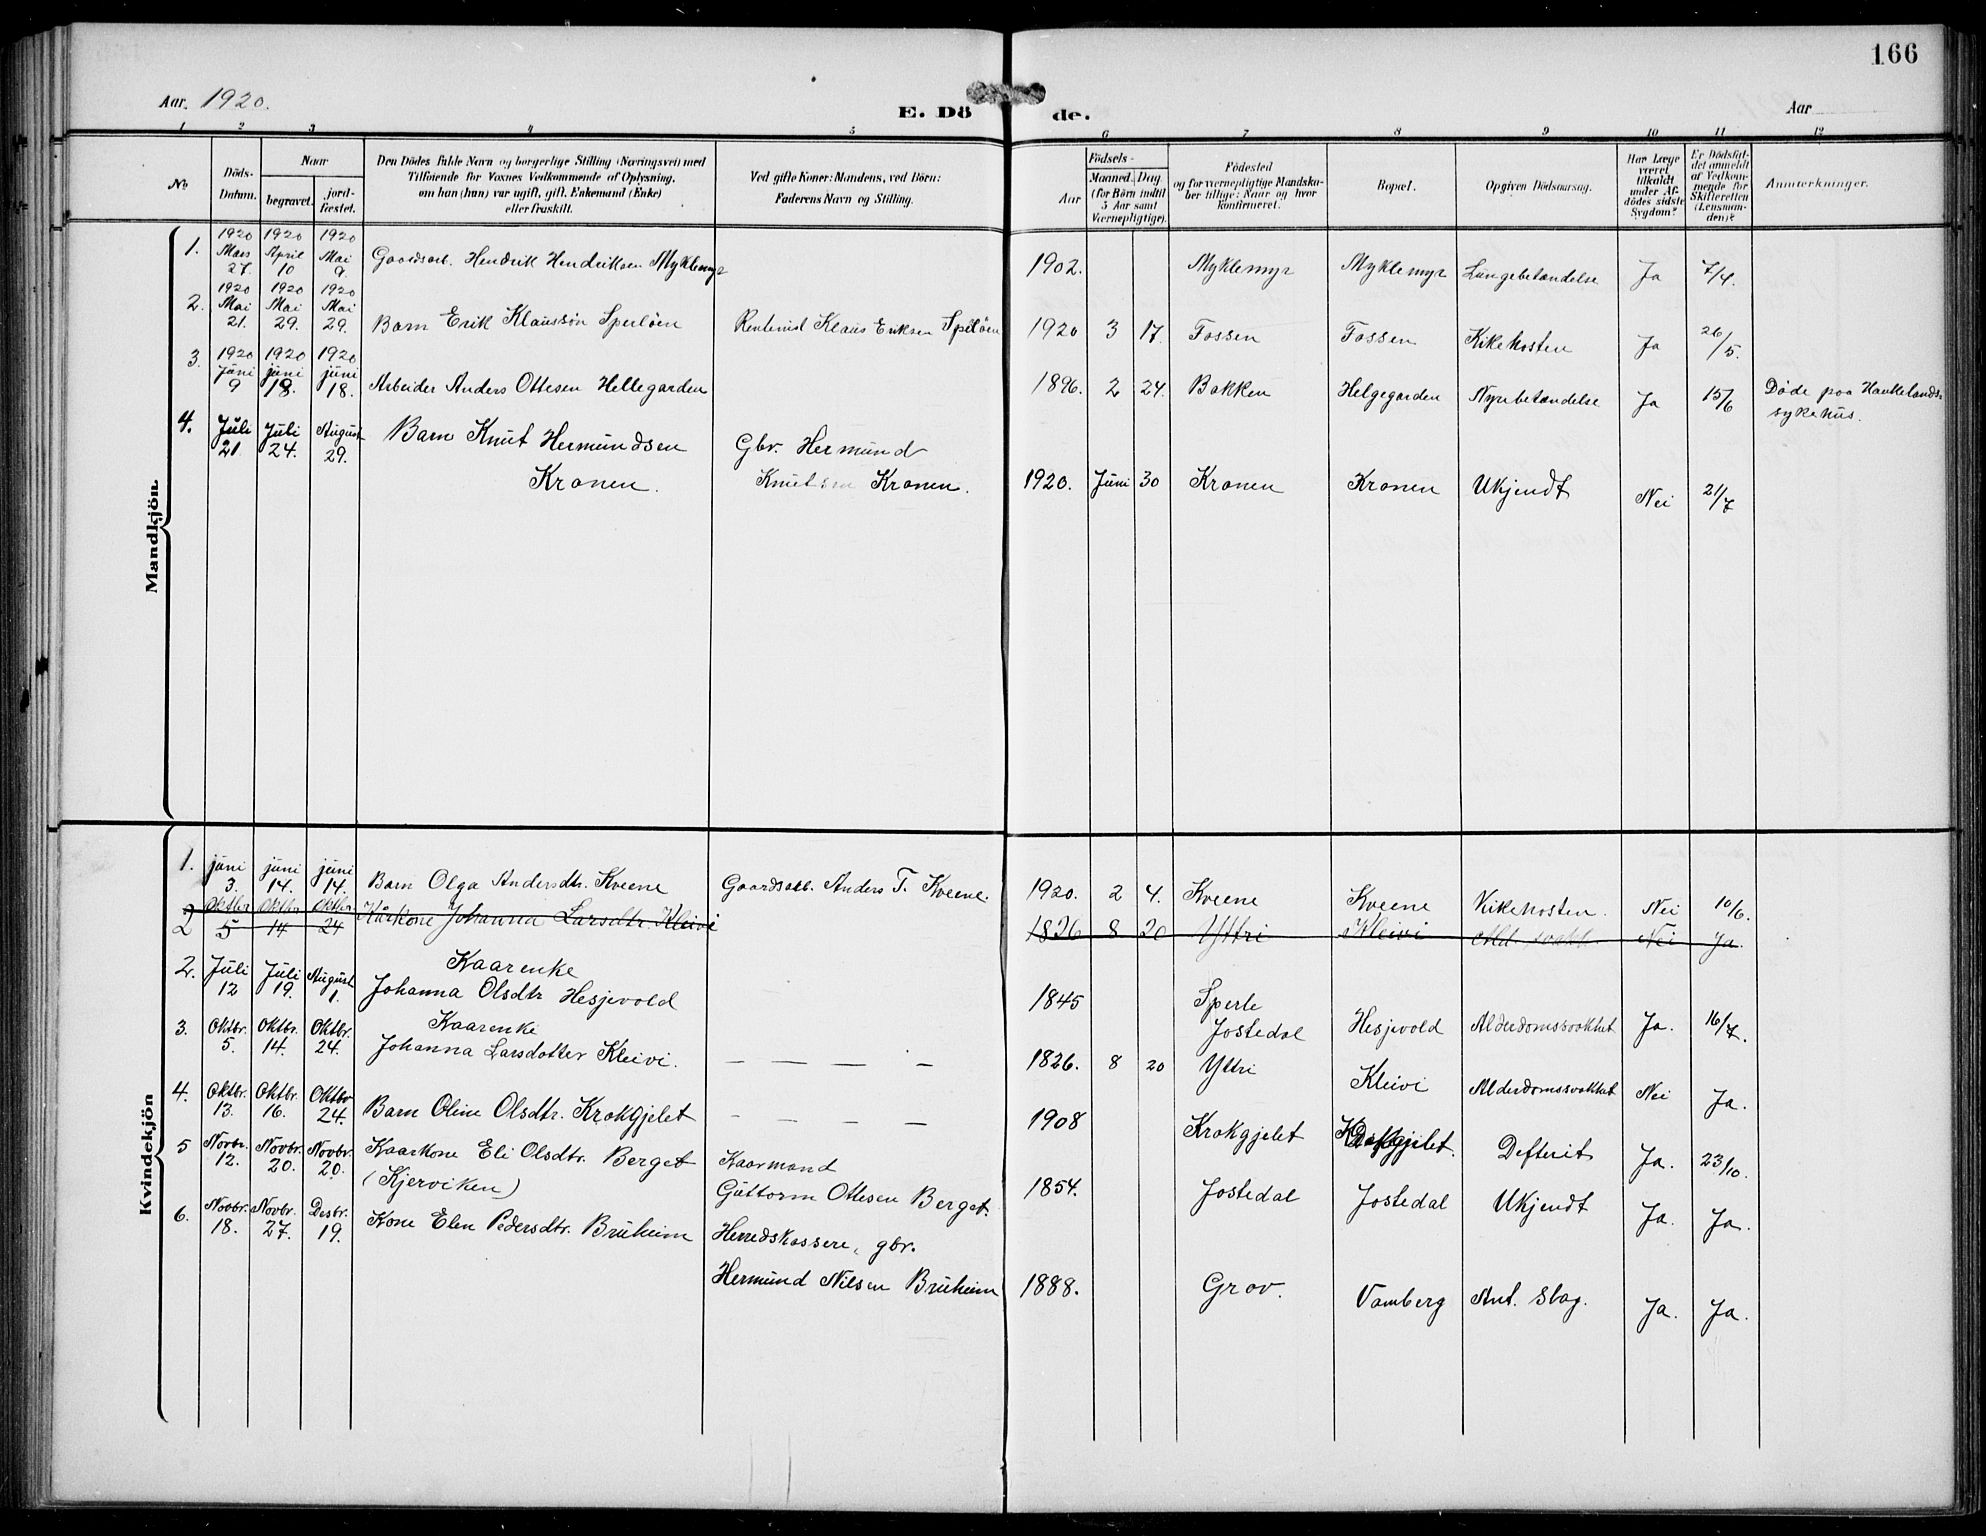 166
Aar. 1920.
E. Dö de.
Aar
1 2 3 4 5 6 7 8 9 10 11 12
No.
Döds-Datum.
Naar begravet. jord-fæstet.
Den Dödes fulde Navn og borgerlige Stilling (Næringsvei) med Tilföiende for Voxnes Vedkommende af Oplysning, om han (hun) var ugift, gift, Enkemand (Enke) eller fraskilt.
Ved gifte Koner: Mandens, ved Börn: Faderens Navn og Stilling.
Födsels-
Aar Maaned. Dag (for Börn indtil 5 Aar samt Værnepligtige).
Födested og for værnepligtige Mandskaber tillige: Naar og hvor konfirmeret.
Bopæl.
Opgiven Dödsaarsag.
Har Læge været tilkaldt under Afdödes sidste Sygdom?
Er Dödsfaldet anmeldt af Vedkommende for Skifteretten (Lensmanden)?
Anmærkninger.
Mandkjön.
1. 1920 Mars 27. 1920 April 10 1920 Mai 9. Gaardsarb. Hendrik Hendriksen Myklemyr 1902. Myklemyr Myklemyr Lungebetændelse Ja 7/4.
2. 1920 Mai 21. 1920 Mai 29. 1920 Mai 29. Barn Erik Klaussøn Sperløen Rentenist Klaus Eriksen Speløen 1920 3 17. Fossen Fossen Kikehosten Ja 26/5.
3. 1920 Juni 9 1920 juni 18. 1920 juni 18. Arbeider Anders Ottesen Hellegarden 1896. 2 24. Bakken Helgegarden Nyrebetændelse Ja 15/6 Døde paa Haukelands-
sykehus.
4. Juli 21. Juli 24. August 29. Barn Knut Hermundsen
Kronen. Gbr. Hermund
Knutsen Kronen. 1920. Juni 30 Kronen Kronen Ukjendt Nei 21/7
Kvindekjön
1. juni 3. juni 14. juni 14. Barn Olga Andersdtr. Kveene Gaardsarb. Anders T. Kveene. 1920. 2 4. Kveene Kveene Kikehosten. Nei 10/6.
2 Oktbr 5 Oktbr 14 Oktbr. 24 Kårkone Johanna Larsdtr. Kleivi 1826 8 20 Yttri Kleivi Ald. svakt Nei Ja.
2. Juli 12 Juli 19. August 1. Kaarenke
Johanna Olsdtr Hesjevold 1845 Sperle
Jostedal Hesjevold Alderdomssvakhet Ja. 16/7.
3. Oktbr. 5. Oktbr. 14. Oktbr. 24. Kaarenke
Johanna Larsdotter Kleivi. — — — — 1826. 8 20 Yttri Kleivi Alderdomssvakhet Nei Ja.
4. Oktbr. 13. Oktbr. 16. Oktbr 24. Barn Oline Olsdtr. Krokgjelet — — — — 1908 Krokgjelet Krokgjelet. Defterit Ja. 23/10.
5 Novbr. 12. Novbr. 20. Novbr. 20. Kaarkone Eli Olsdtr. Berget
(Kjerviken) Kaarmand
Guttorm Ottesen Berget. 1854. Jostedal Jostedal Ukjendt Ja. Ja.
6. Novbr. 18. Novbr. 27. Desbr. 19. Kone Elen Pedersdtr. Bruheim Herredskassere, gbr.
Hermund Nilsen Bruheim 1888. Grov. Vamberg Ant. Slag. Ja. Ja.